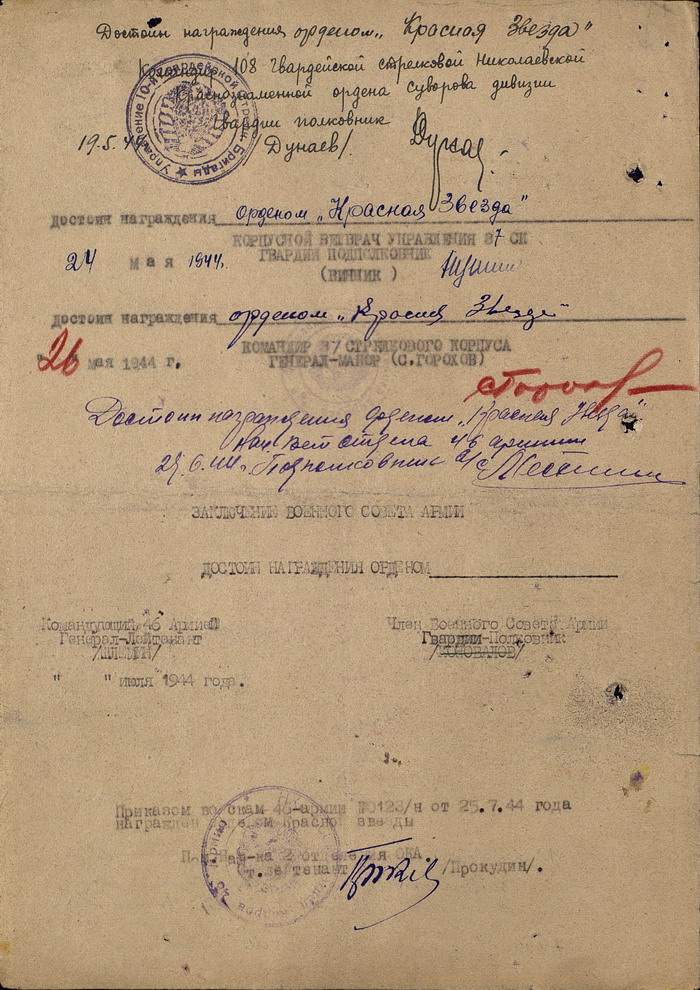 Достоин награждения орденом „Красная Звезда"
Командир 108 Гвардейской стрелковой Николаевской
Краснознаменной ордена Суворова дивизии
Гвардии полковник
19.5.4 /Дунаев/.
Управление 10-й гвардейской стрелк. Бригады
достоин награждения орденом „Красная Звезда"
КОРПУСНОЙ ВЕТВРАЧ УПРАВЛЕНИЯ 37 СК
24 мая 1944г. ГВАРДИИ ПОДПОЛКОВНИК
(ВИННИК)
достоин награждения орденом „Красная Звезда"
КОМАНДИР 37 СТРЕЛКОВОГО КОРПУСА
"26" мая 1944 г. ГЕНЕРАЛ-МАИОР (С.ГОРОХОВ)
Достоин награждения орденом „Красная Звезда"
Нач вет отдела 46 армии
Подполковник в/с
ЗАКЛЮЧЕНИЕ ВОЕННОГО СОВЕТА АРМИИ
ДОСТОИН НАГРАЖДЕНИЯ ОРДЕНОМ
Командующий 46 Армией Член Военного Совета Армии
Генерал-Лейтенант Гвардии-Полковник
/ШЛЕМИН/ /КОНОВАЛОВ/
" " июля 1944 года.
Приказом войскам 46-армии №0123/н от 25.7.44 года
награжден орденом Красной звезды
Пом.Нач-ка 2 отделения ОКА.
ст.лейтенант /Прокудин/.